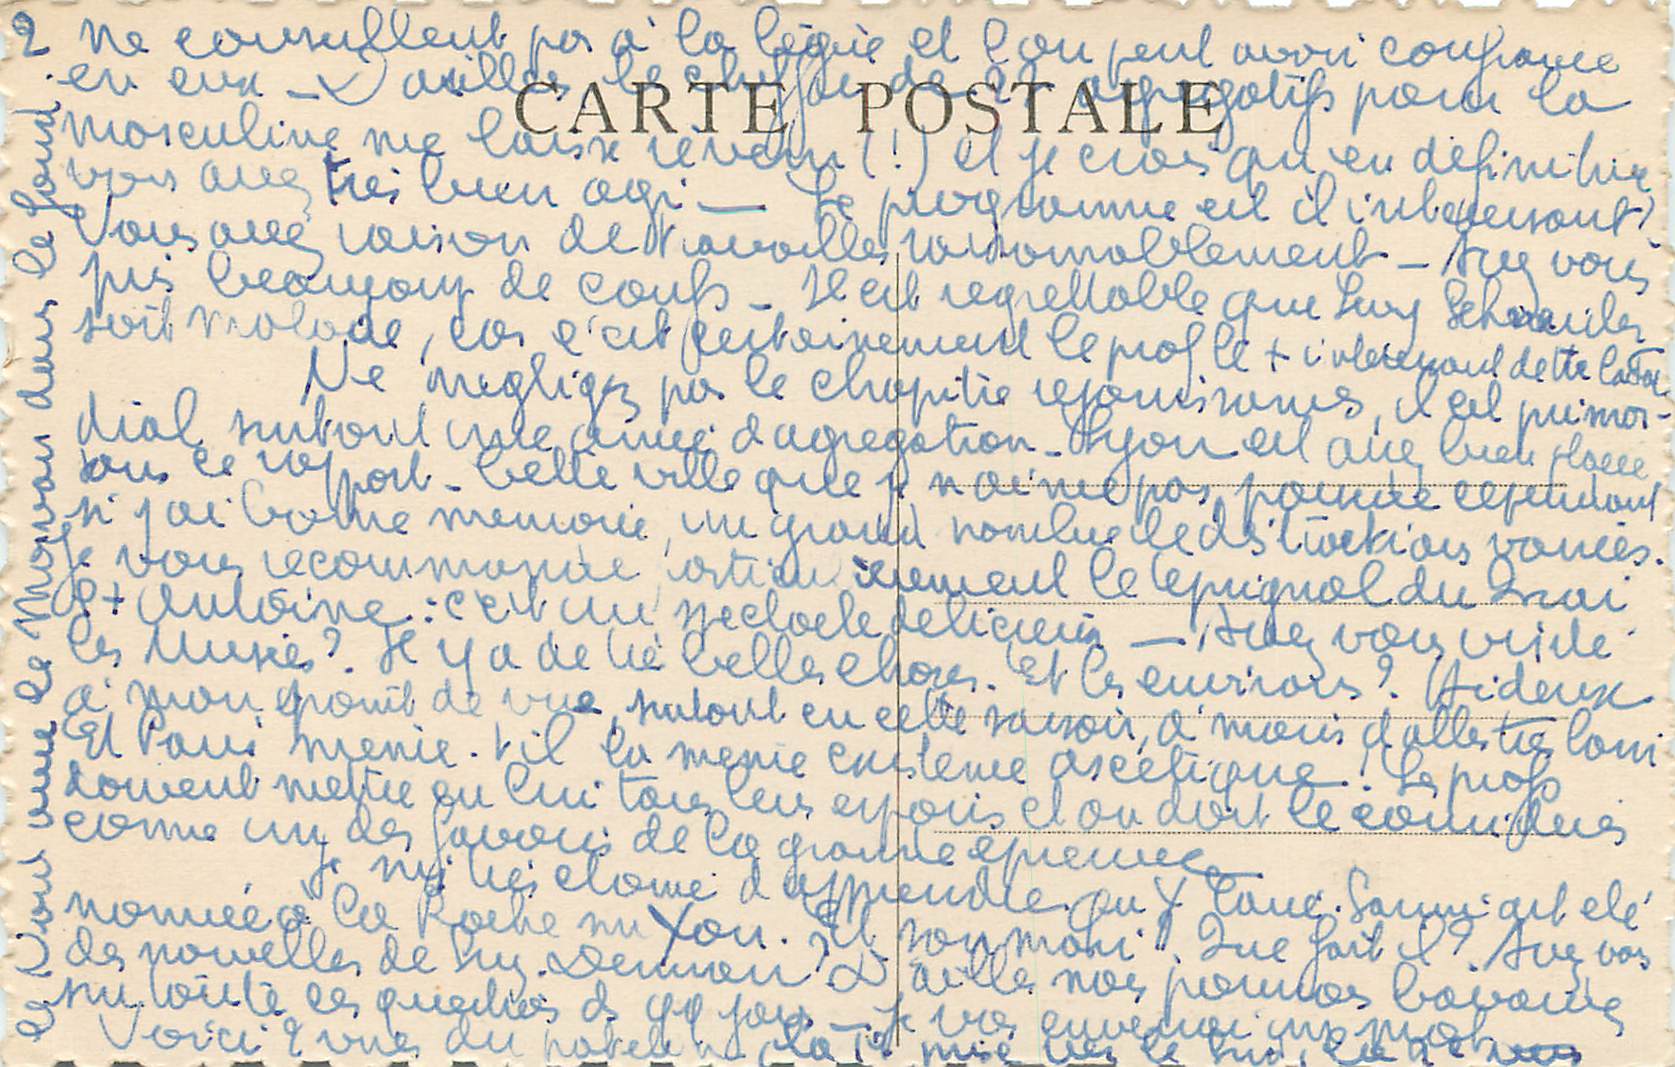 2 ne conseillent pas à la légère et l'on peut avoir confiance
en eux _ D'ailleurs le chiffre de 21 agrégatifs pour la
CARTE POSTALE
masculine me laisse rêveur (!) et je crois qu'en définitive
vous avez très bien agi _ Le programme est il intéressant?
Vous avez raison de travailler raisonnablement _ Avez vous
pris beaucoup de cours _ Il est regrettable que
soit malade, car c'est certainement le prof le + intéressant de tte la
Ne négligez pas le chapitre réjouissances, il est primor-
dial surtout une année d'agrégation _ Lyon est assez bien placée
sous ce rapport _ belle ville que je n'aime pas, pourvue cependant
si j'ai bonne mémoire, un grand nombre de distractions variées.
Je vous recommande particulièrement le guignol du Quai
St Antoine : c'est un spectacle délicieux _ Avez vous visité
les Musées? Il y a de très belles choses. Et les environs? Hideux
à mon point de vue, surtout en cette saison, à moins d'aller très loin
Et Paris mène-t-il la même existence ascétique? Les profs
doivent mettre en lui tous leurs espoirs et on doit le considérer
comme un des favoris de la grande épreuve _
Je suis très étonné d'apprendre qu'Y. est été
nommée à La Roche sur Yon. Et son mari? Que fait il? Avez vous
des nouvelles de D'ailleurs nous pourrons bavarder
sur toutes ces questions ds qq jours _ Je vous enverrai un mot
Voici 2 vues du la 1e vers le sud, la 2e
vers une le Morvan dans le fond.